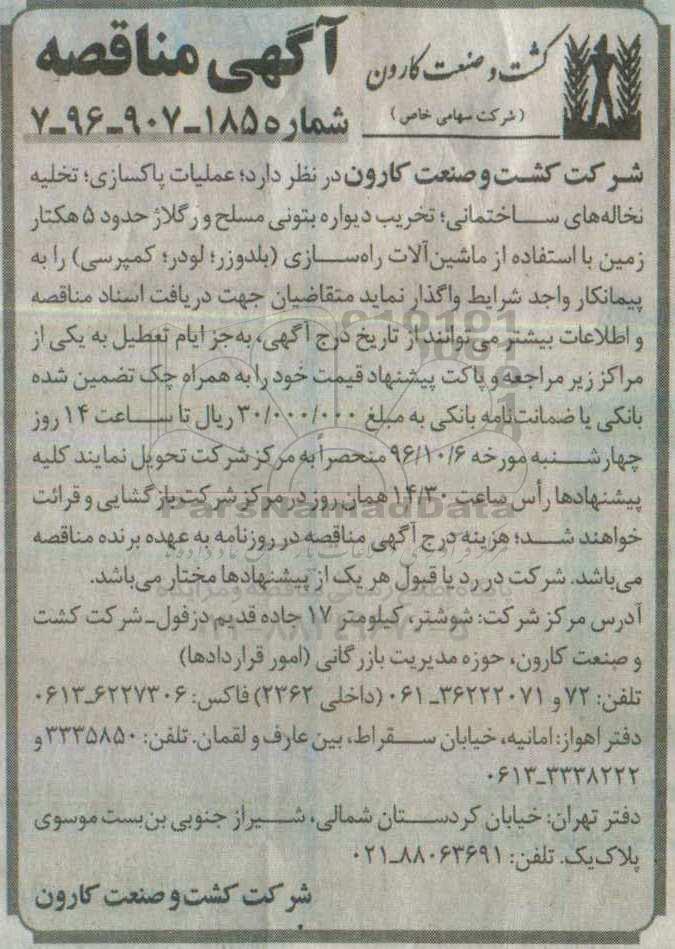 کشت و صنعت کارون
(شرکت سهامی خاص)
آگهی مناقصه
شماره ۱۸۵-۹۰۷-۹۶-۷
شرکت کشت و صنعت کارون در نظر دارد؛ عملیات پاکسازی؛ تخلیه
نخاله‌های ساختمانی؛ تخریب دیواره بتونی مسلح و رگلاژ حدود ۵ هکتار
زمین با استفاده از ماشین‌آلات راه‌سازی (بلدوزر؛ لودر؛ کمپرسی) را به
پیمانکار واجد شرایط واگذار نماید متقاضیان جهت دریافت اسناد مناقصه
و اطلاعات بیشتر می‌توانند از تاریخ درج آگهی، به‌جز ایام تعطیل به یکی از
مراکز زیر مراجعه و پاکت پیشنهاد قیمت خود را به همراه چک تضمین شده
بانکی یا ضمانت‌نامه بانکی به مبلغ ۳۰/۰۰۰/۰۰۰ ریال تا ساعت ۱۴ روز
چهارشنبه مورخه ۹۶/۱۰/۶ منحصراً به مرکز شرکت تحویل نمایند کلیه
پیشنهادها رأس ساعت ۱۴/۳۰ همان روز در مرکز شرکت بازگشایی و قرائت
خواهند شد؛ هزینه درج آگهی مناقصه در روزنامه به عهده برنده مناقصه
می‌باشد. شرکت در رد یا قبول هر یک از پیشنهادها مختار می‌باشد.
آدرس مرکز شرکت: شوشتر، کیلومتر ۱۷ جاده قدیم دزفول-شرکت کشت
و صنعت کارون، حوزه مدیریت بازرگانی (امور قراردادها)
تلفن: ۷۲ و ۳۶۲۲۲۰۷۱-۰۶۱ (داخلی ۲۳۶۲) فاکس: ۶۲۲۷۳۰۶-۰۶۱۳
دفتر اهواز: امانیه، خیابان سقراط، بین عارف و لقمان. تلفن: ۳۳۳۵۸۵۰ و
۳۳۳۸۲۲۲-۰۶۱۳
دفتر تهران: خیابان کردستان شمالی، شیراز جنوبی بن‌بست موسوی
پلاک یک. تلفن: ۸۸۰۶۳۶۹۱-۰۲۱
شرکت کشت و صنعت کارون
ParsNamadData